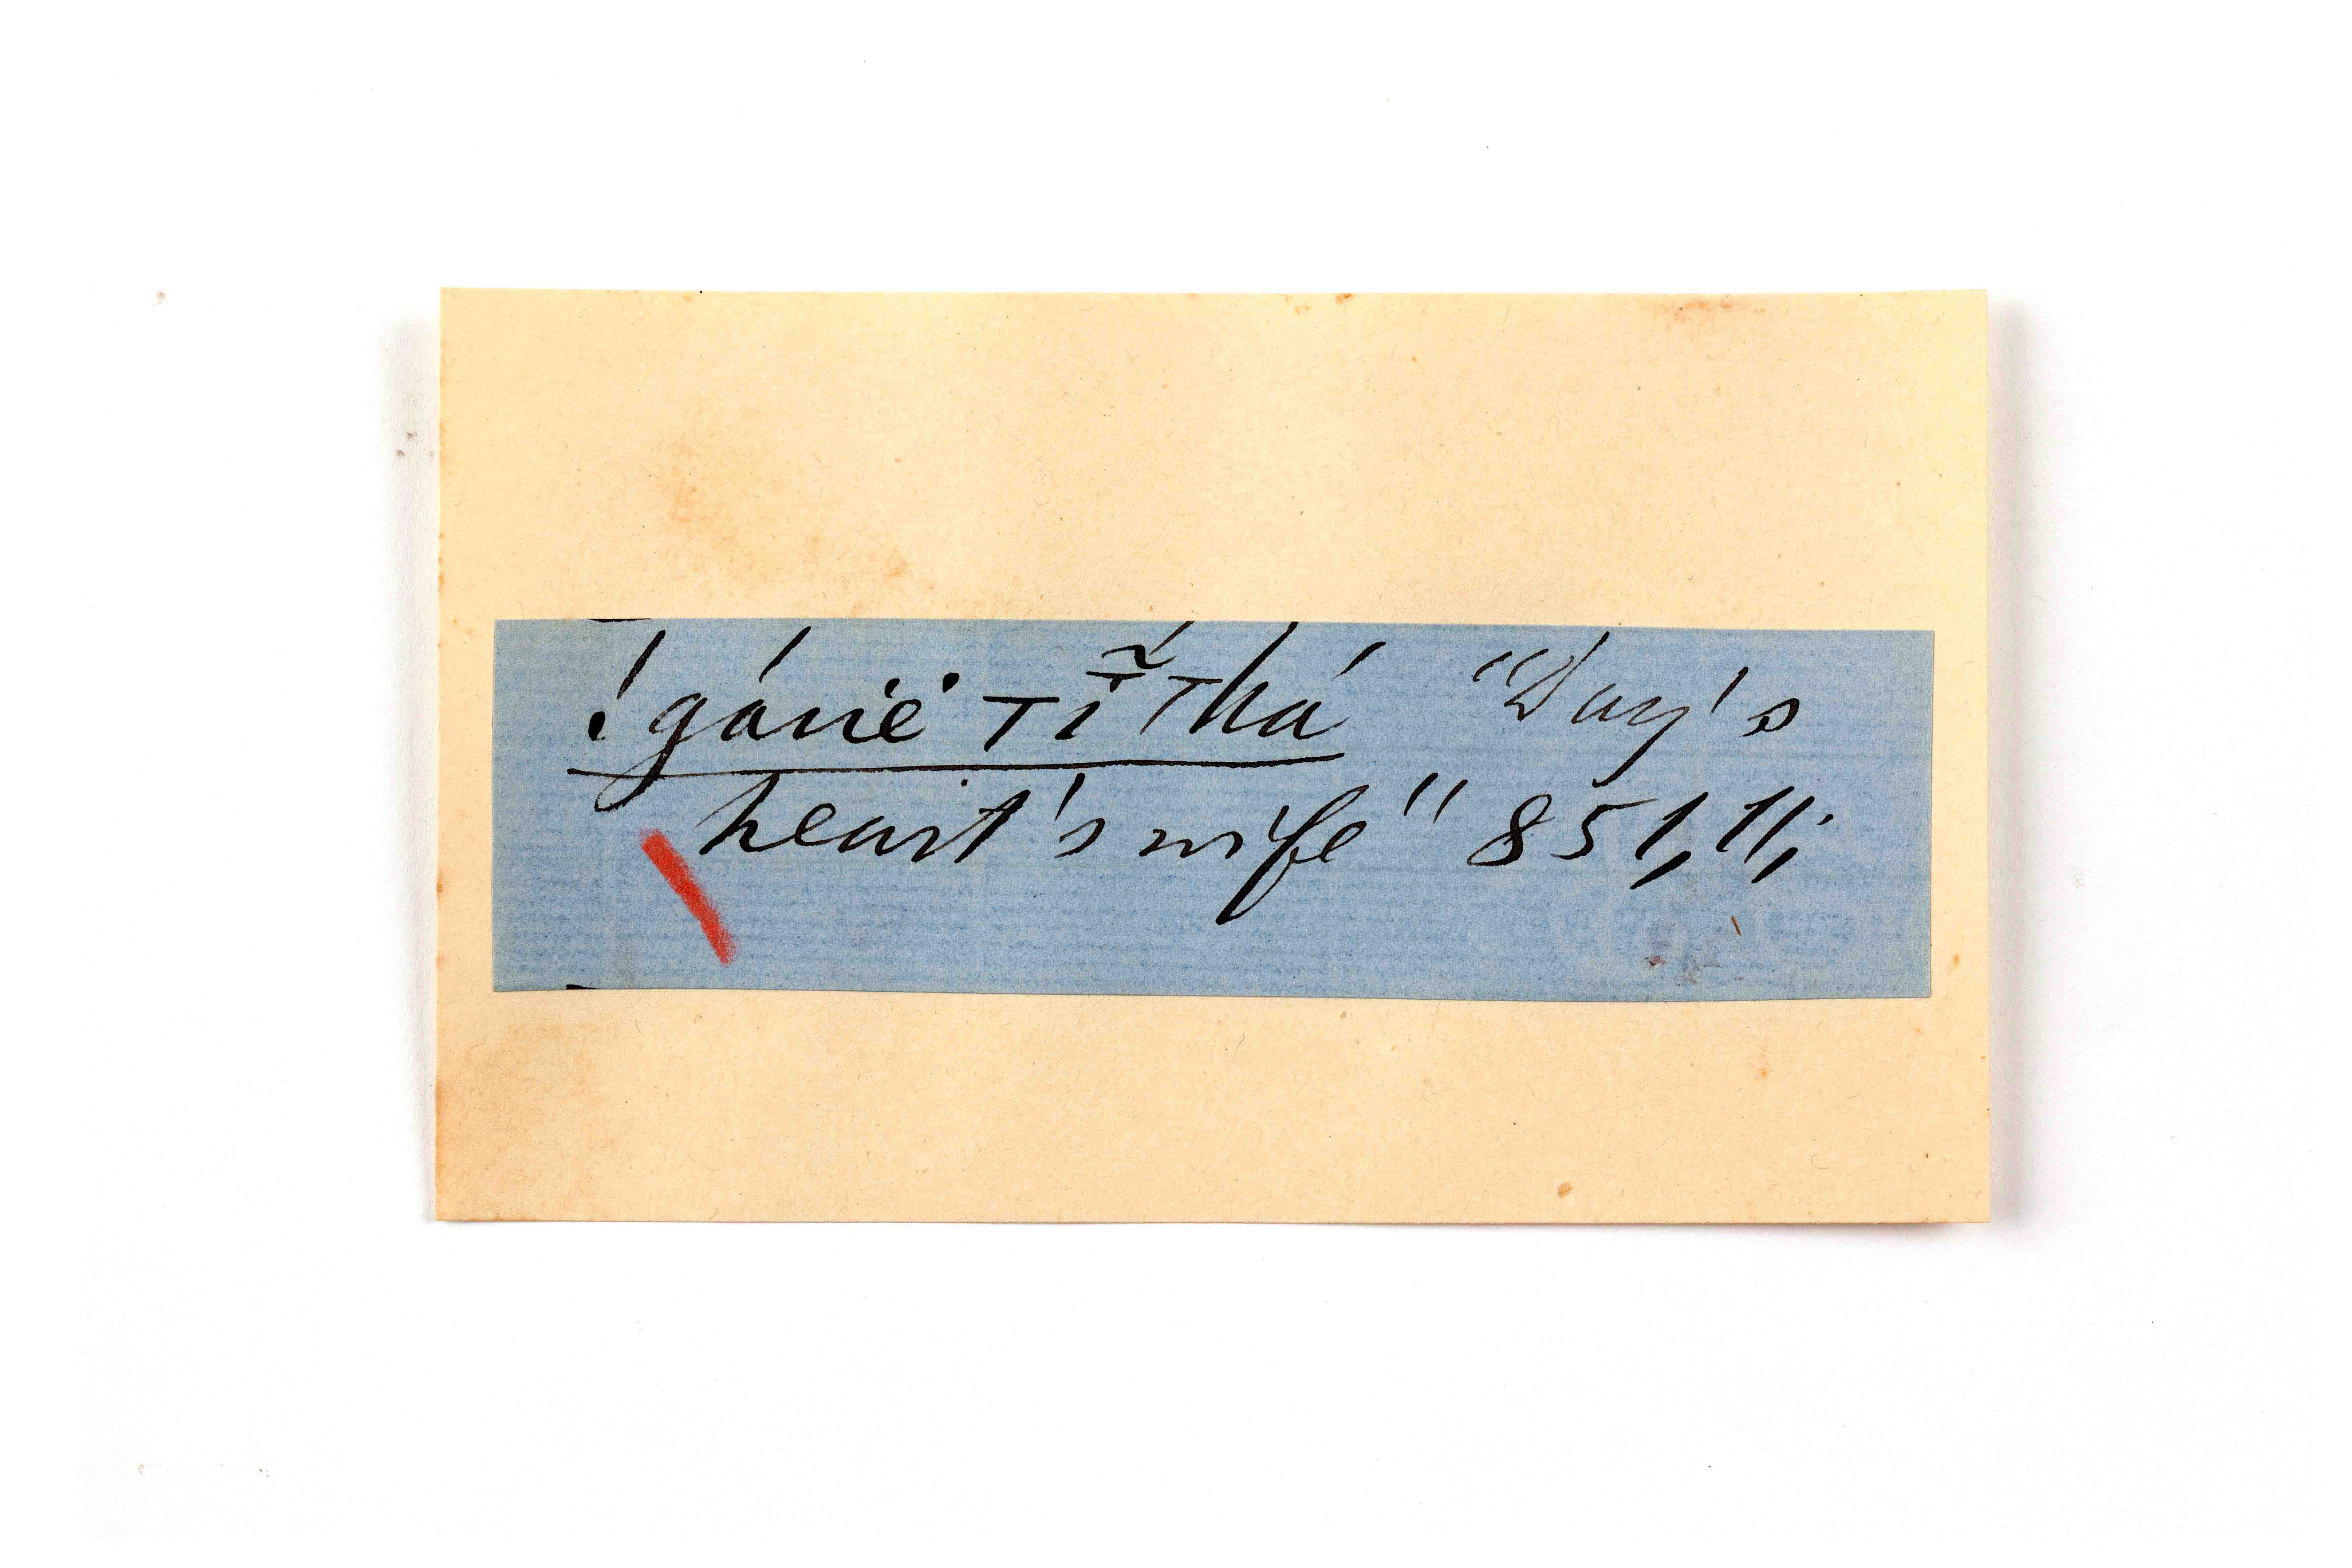 !gáuë Tĭ̃ Thá "Day's
heart's wife" 851, 11;